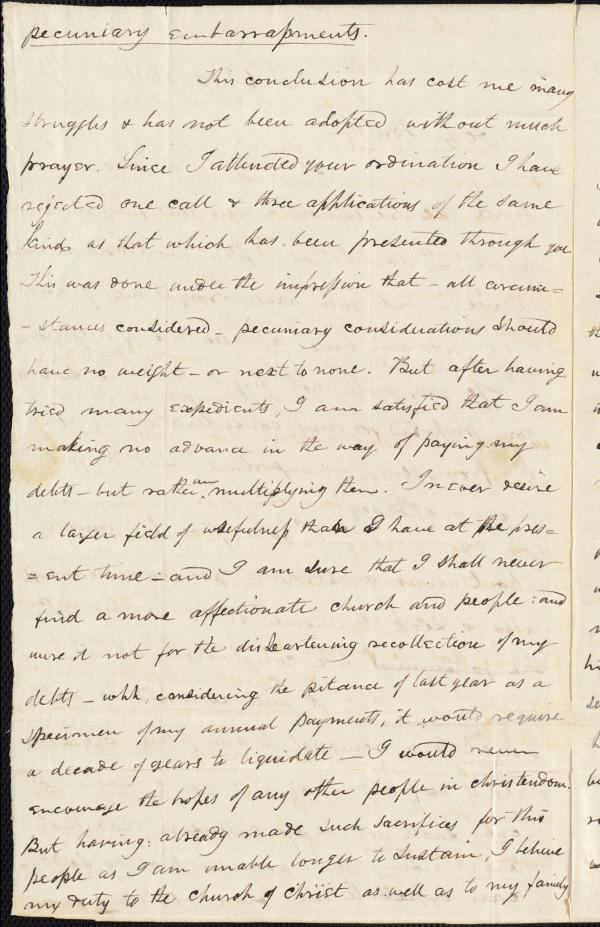 pecuniary embarrassments.
This conclusion has cost me many
struggles & has not been adopted without much
prayer. Since I attended your ordination I have
rejected one call & three applications of the same
kind as that which has been presented through you
This was done under the impression that - all circum=
-stances considered - pecuniary considerations should
have no weight - or next to none. But after having
tried many expedients, I am satisfied that I am
making no advance in the way of paying my
debts - but rather am multiplying them. I never desire
a larger field of usefulness than I have at the pres=
=ent time - and I am sure that I shall never
find a more affectionate church and people: and
were it not for the disheartening recollection of my
debts - whh, considering the pitance of last year as a
specimen of my annual payments, it would require
a decade of years to liquidate - I would never
encourage the hopes of any other people in christendom.
But having already made such sacrifices for this
people as I am unable longer to sustain, I believe
my duty to the church of Christ as well as to my family